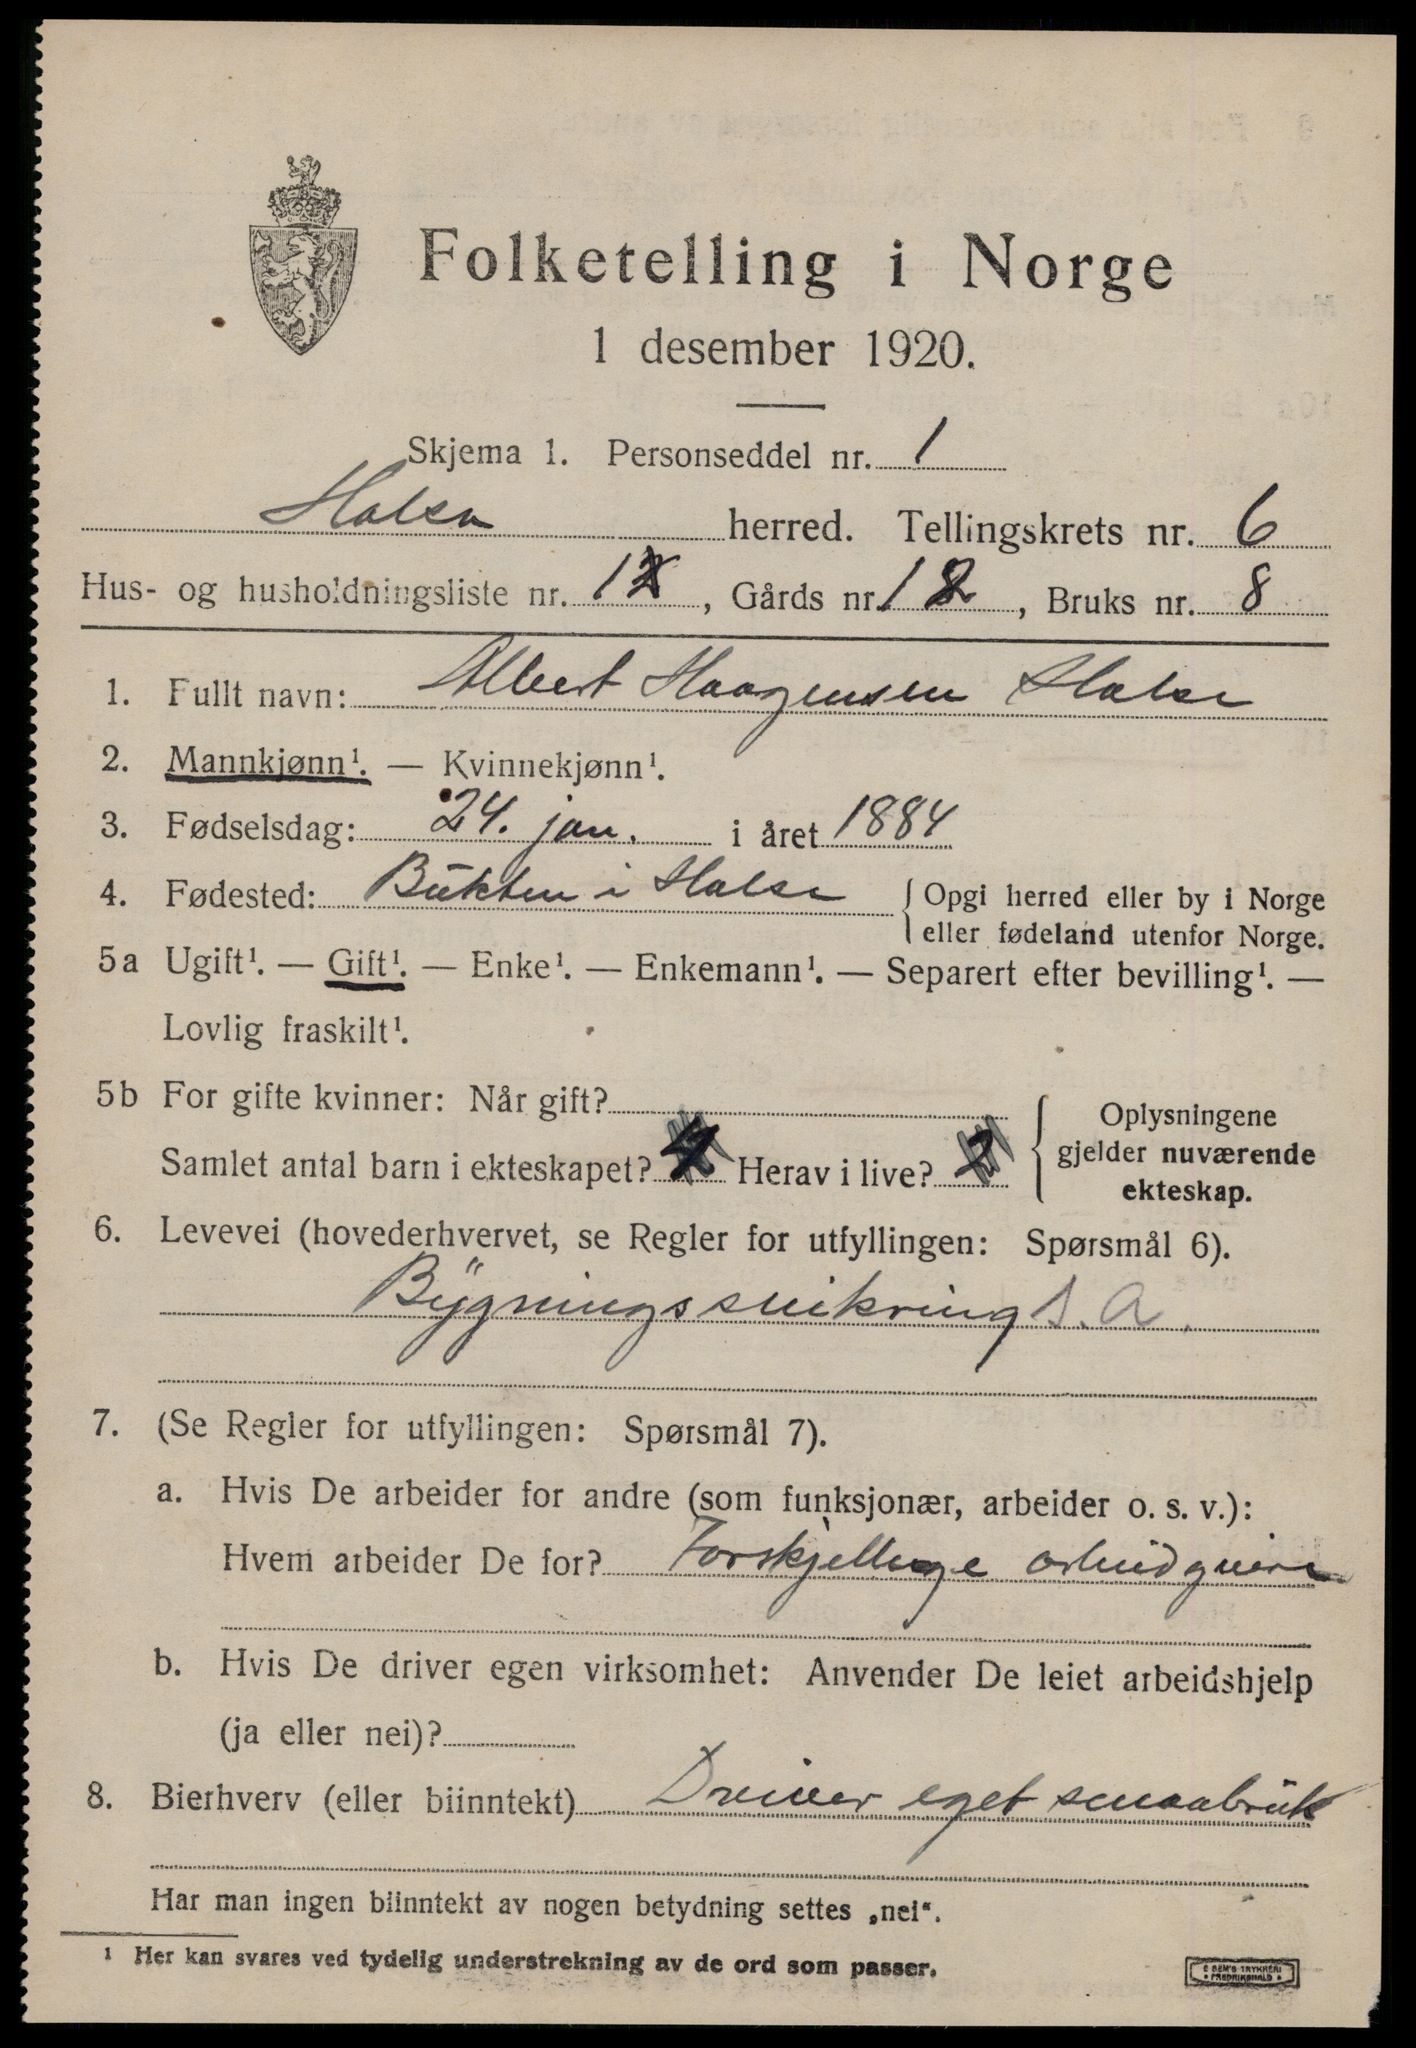 Folketelling i Norge
1 desember 1920.
Skjema 1. Personseddel nr. 1
Halsa herred. Tellingskrets nr. 6
Hus- og husholdningsliste nr. 12, Gårds nr. 12, Bruks nr. 8
1. Fullt navn: Albert Haagensen Halse
2. Mannkjønn¹. — Kvinnekjønn¹.
3. Fødselsdag: 24. jan. i året 1884
4. Fødested: Bukten i Halse { Opgi herred eller by i Norge
eller fødeland utenfor Norge.
5a Ugift¹. — Gift¹. — Enke¹. — Enkemann¹. — Separert efter bevilling¹. —
Lovlig fraskilt¹.
5b For gifte kvinner: Når gift?
Samlet antal barn i ekteskapet? Herav i live? 2
Oplysningene
gjelder nuværende
ekteskap.
6. Levevei (hovederhvervet, se Regler for utfyllingen: Spørsmål 6).
Bygningssnikring S. A.
7. (Se Regler for utfyllingen: Spørsmål 7).
a. Hvis De arbeider for andre (som funksjonær, arbeider o. s. v.):
Hvem arbeider De for? Forskjellige arbeidgivere
b. Hvis De driver egen virksomhet: Anvender De leiet arbeidshjelp
(ja eller nei)?
8. Bierhverv (eller biinntekt) Driver eget smaabruk
Har man ingen biinntekt av nogen betydning settes „nei“.
¹ Her kan svares ved tydelig understrekning av de ord som passer.
E SEM'S TRYKKERI
FREDRIKSHALD